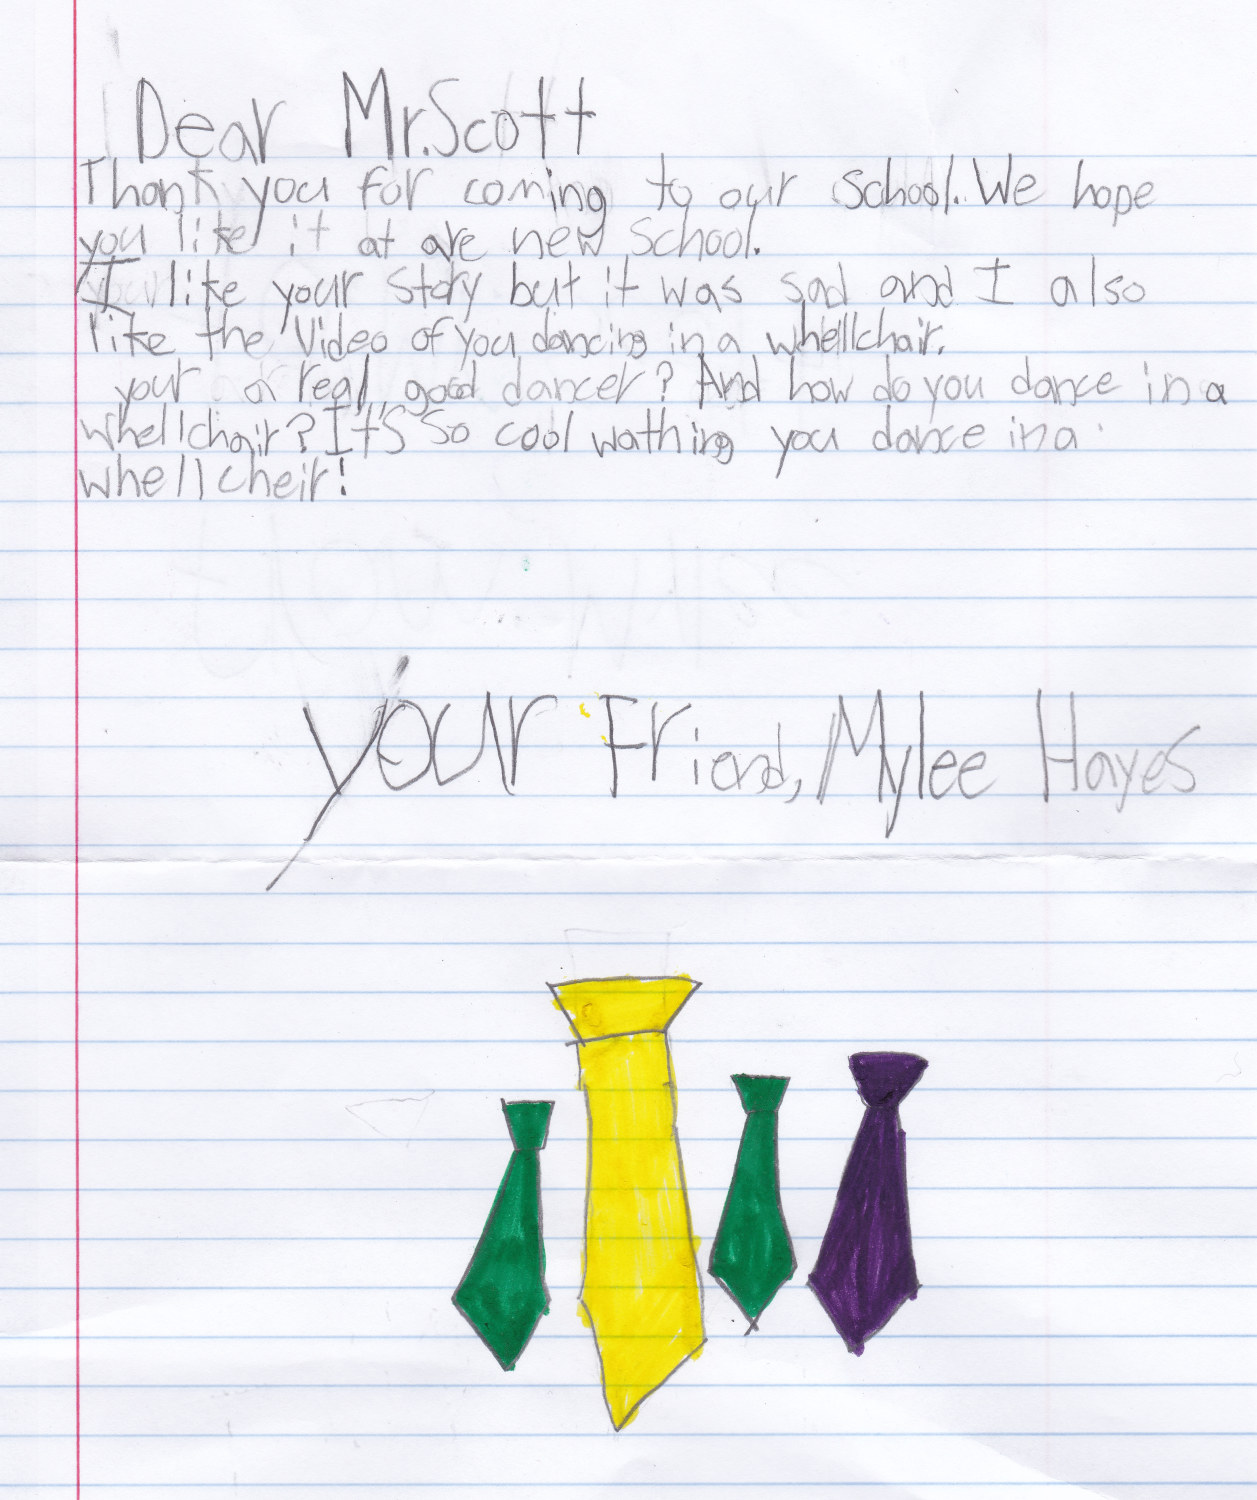 Dear Mr.Scott
Thank you for coming to our school. We hope
you like it at are new School.
I like your Story but it was sad and I also
like the Video of you dancing in a whellchair.
your a real good dancer? And how do you dance in a
whellchair? It's so cool wathing you dance in a
whellcheir!
your Friend, Mylee Hayes